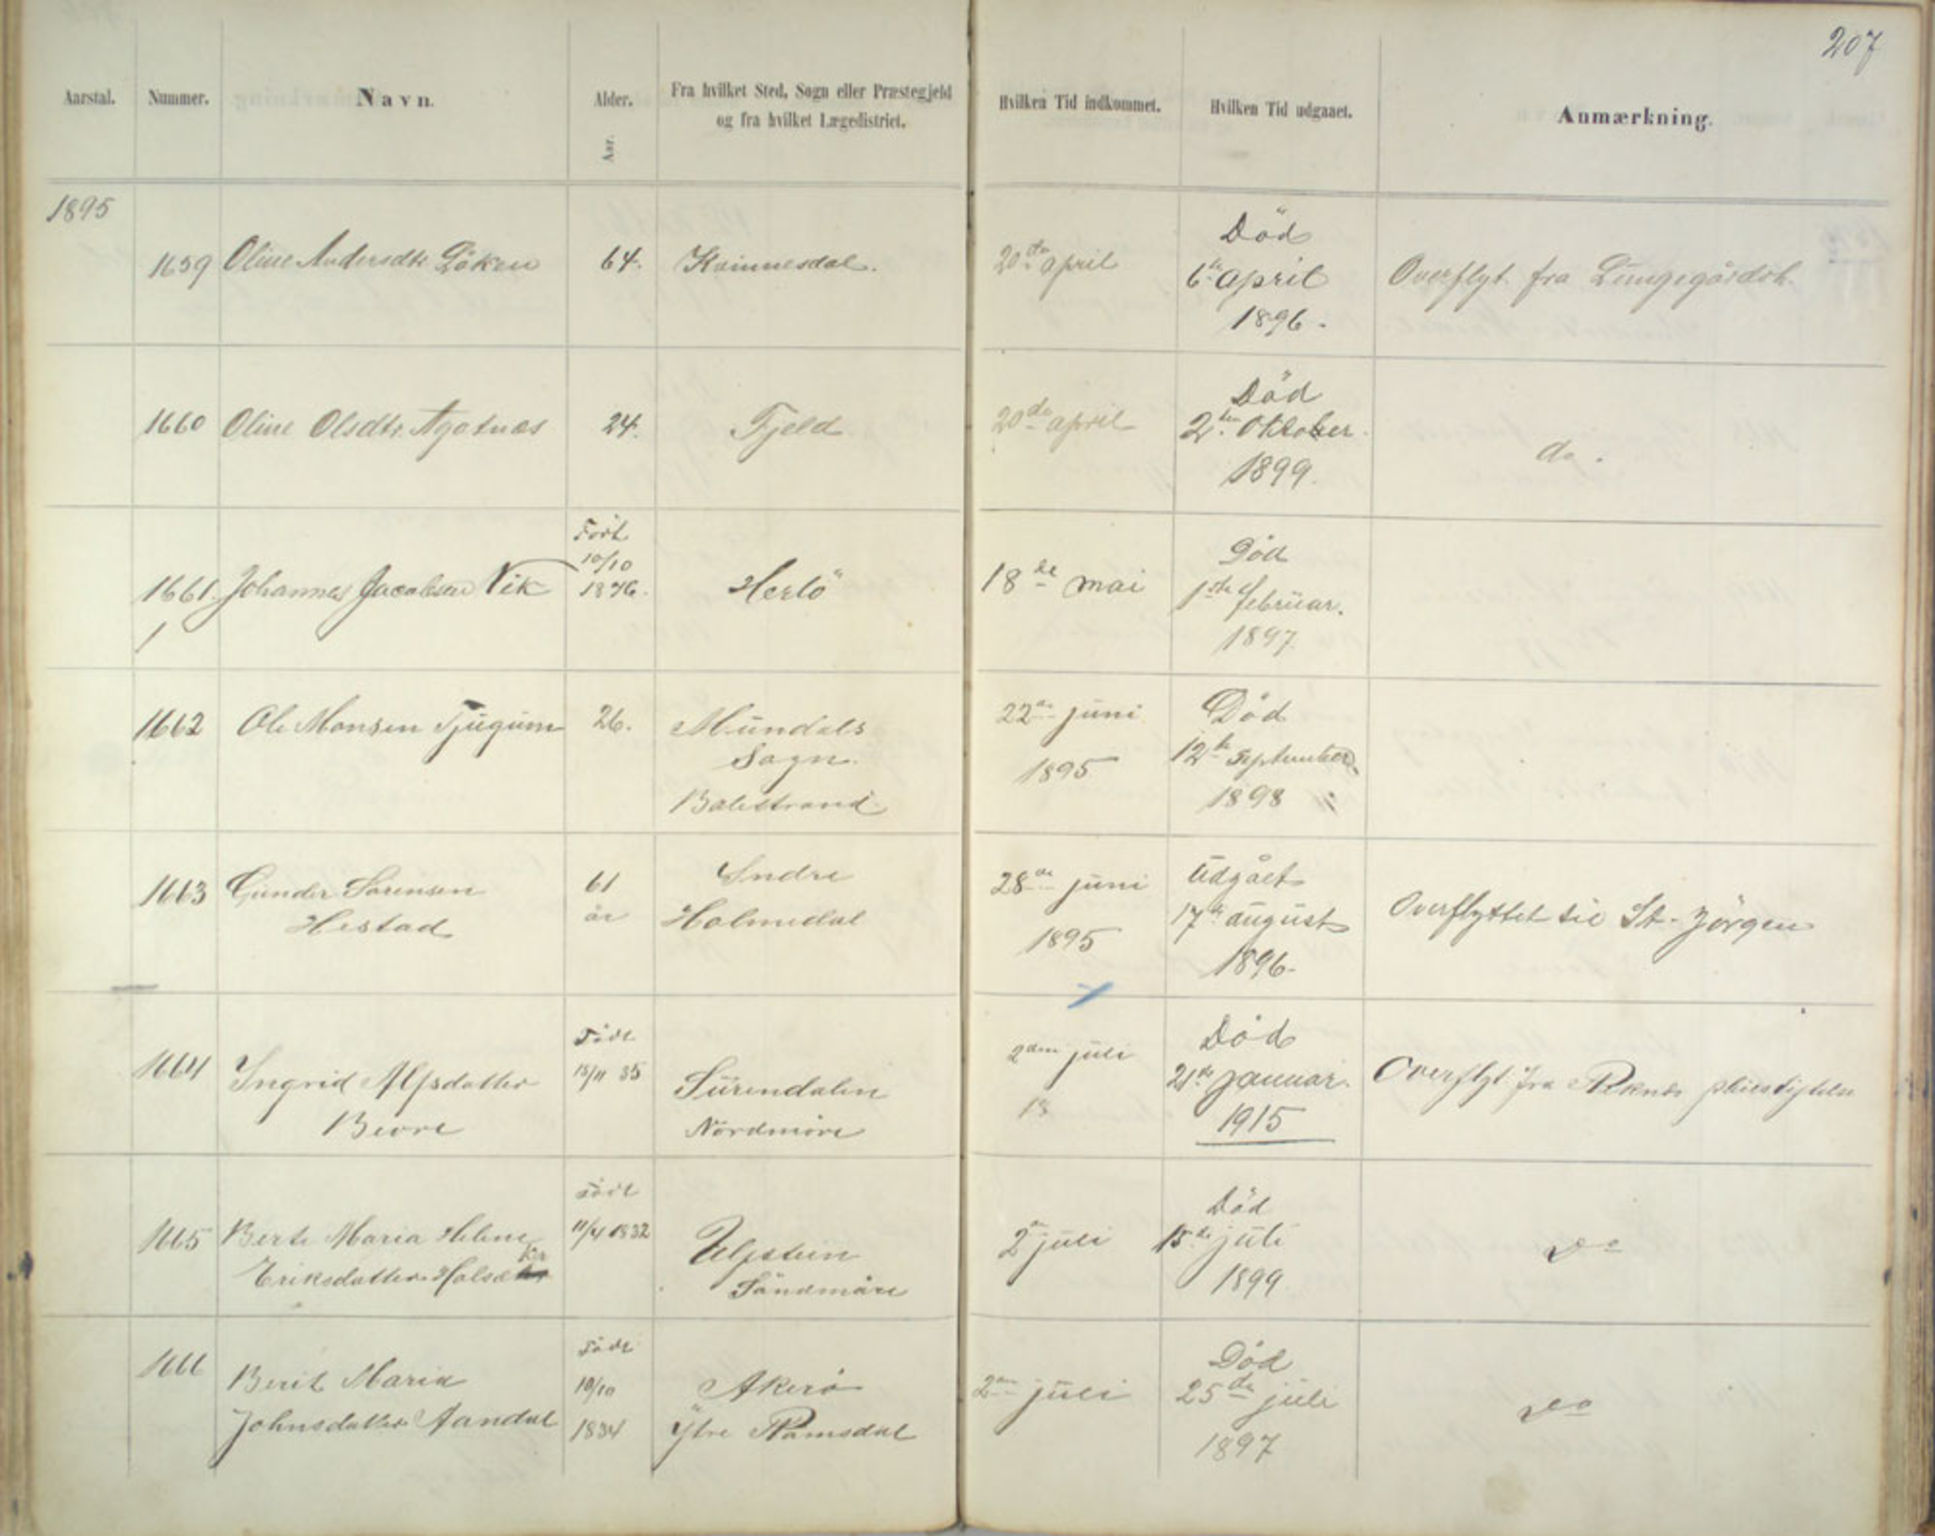 207
Aarstal. Nummer. Navn. Alder. Fra hvilket Sted, Sogn eller Præstegjeld Hvilken Tid indkommet. Hvilken Tid udgaaet. Anmærkning.
og fra hvilket Lægedistrict.
Aar.
1895
Död
1659 Oline Andersdtr. 64. 20de april 6te april Overflyt. fra Lungegårdsh.
1896.
Död
1660 Oline Olsdtr. Agotnæs 24. Fjeld 20de april 2den Oktober do.
1899.
Född
10/10
Död
1661. Johannes Jacobsen Vik 1876. Herlö 18de mai 1ste februar.
1 1897.
1662 Ole Monsen Tjugum 26. Mundals 22de juni Död
Sogn. 1895 12te september
Balestrand 1898
1663 Gunder Sörensen 61 Indre 28de juni Udgået
Hestad år Holmedal 1895 17de august Overflyttet til St. Jörgen
1896.
Född Död
1664 Ingrid Alfsdatter 15/11 35 Surendalen 2den juli 21de januar. Overflyt. fra Reknes pleiestiftelse
Bevre Nordmöre 18 1915
Född Död
1665 Berte Maria Heline 11/4 1832 Ulfstein 2de juli 15de juli do
Eriksdatter Söndmöre 1899.
Född Död
1666 Berit Maria 10/10 Akerö 2den juli 25de juli do
Johnsdatter Aandal 1834 Ytre Romsdal 1897